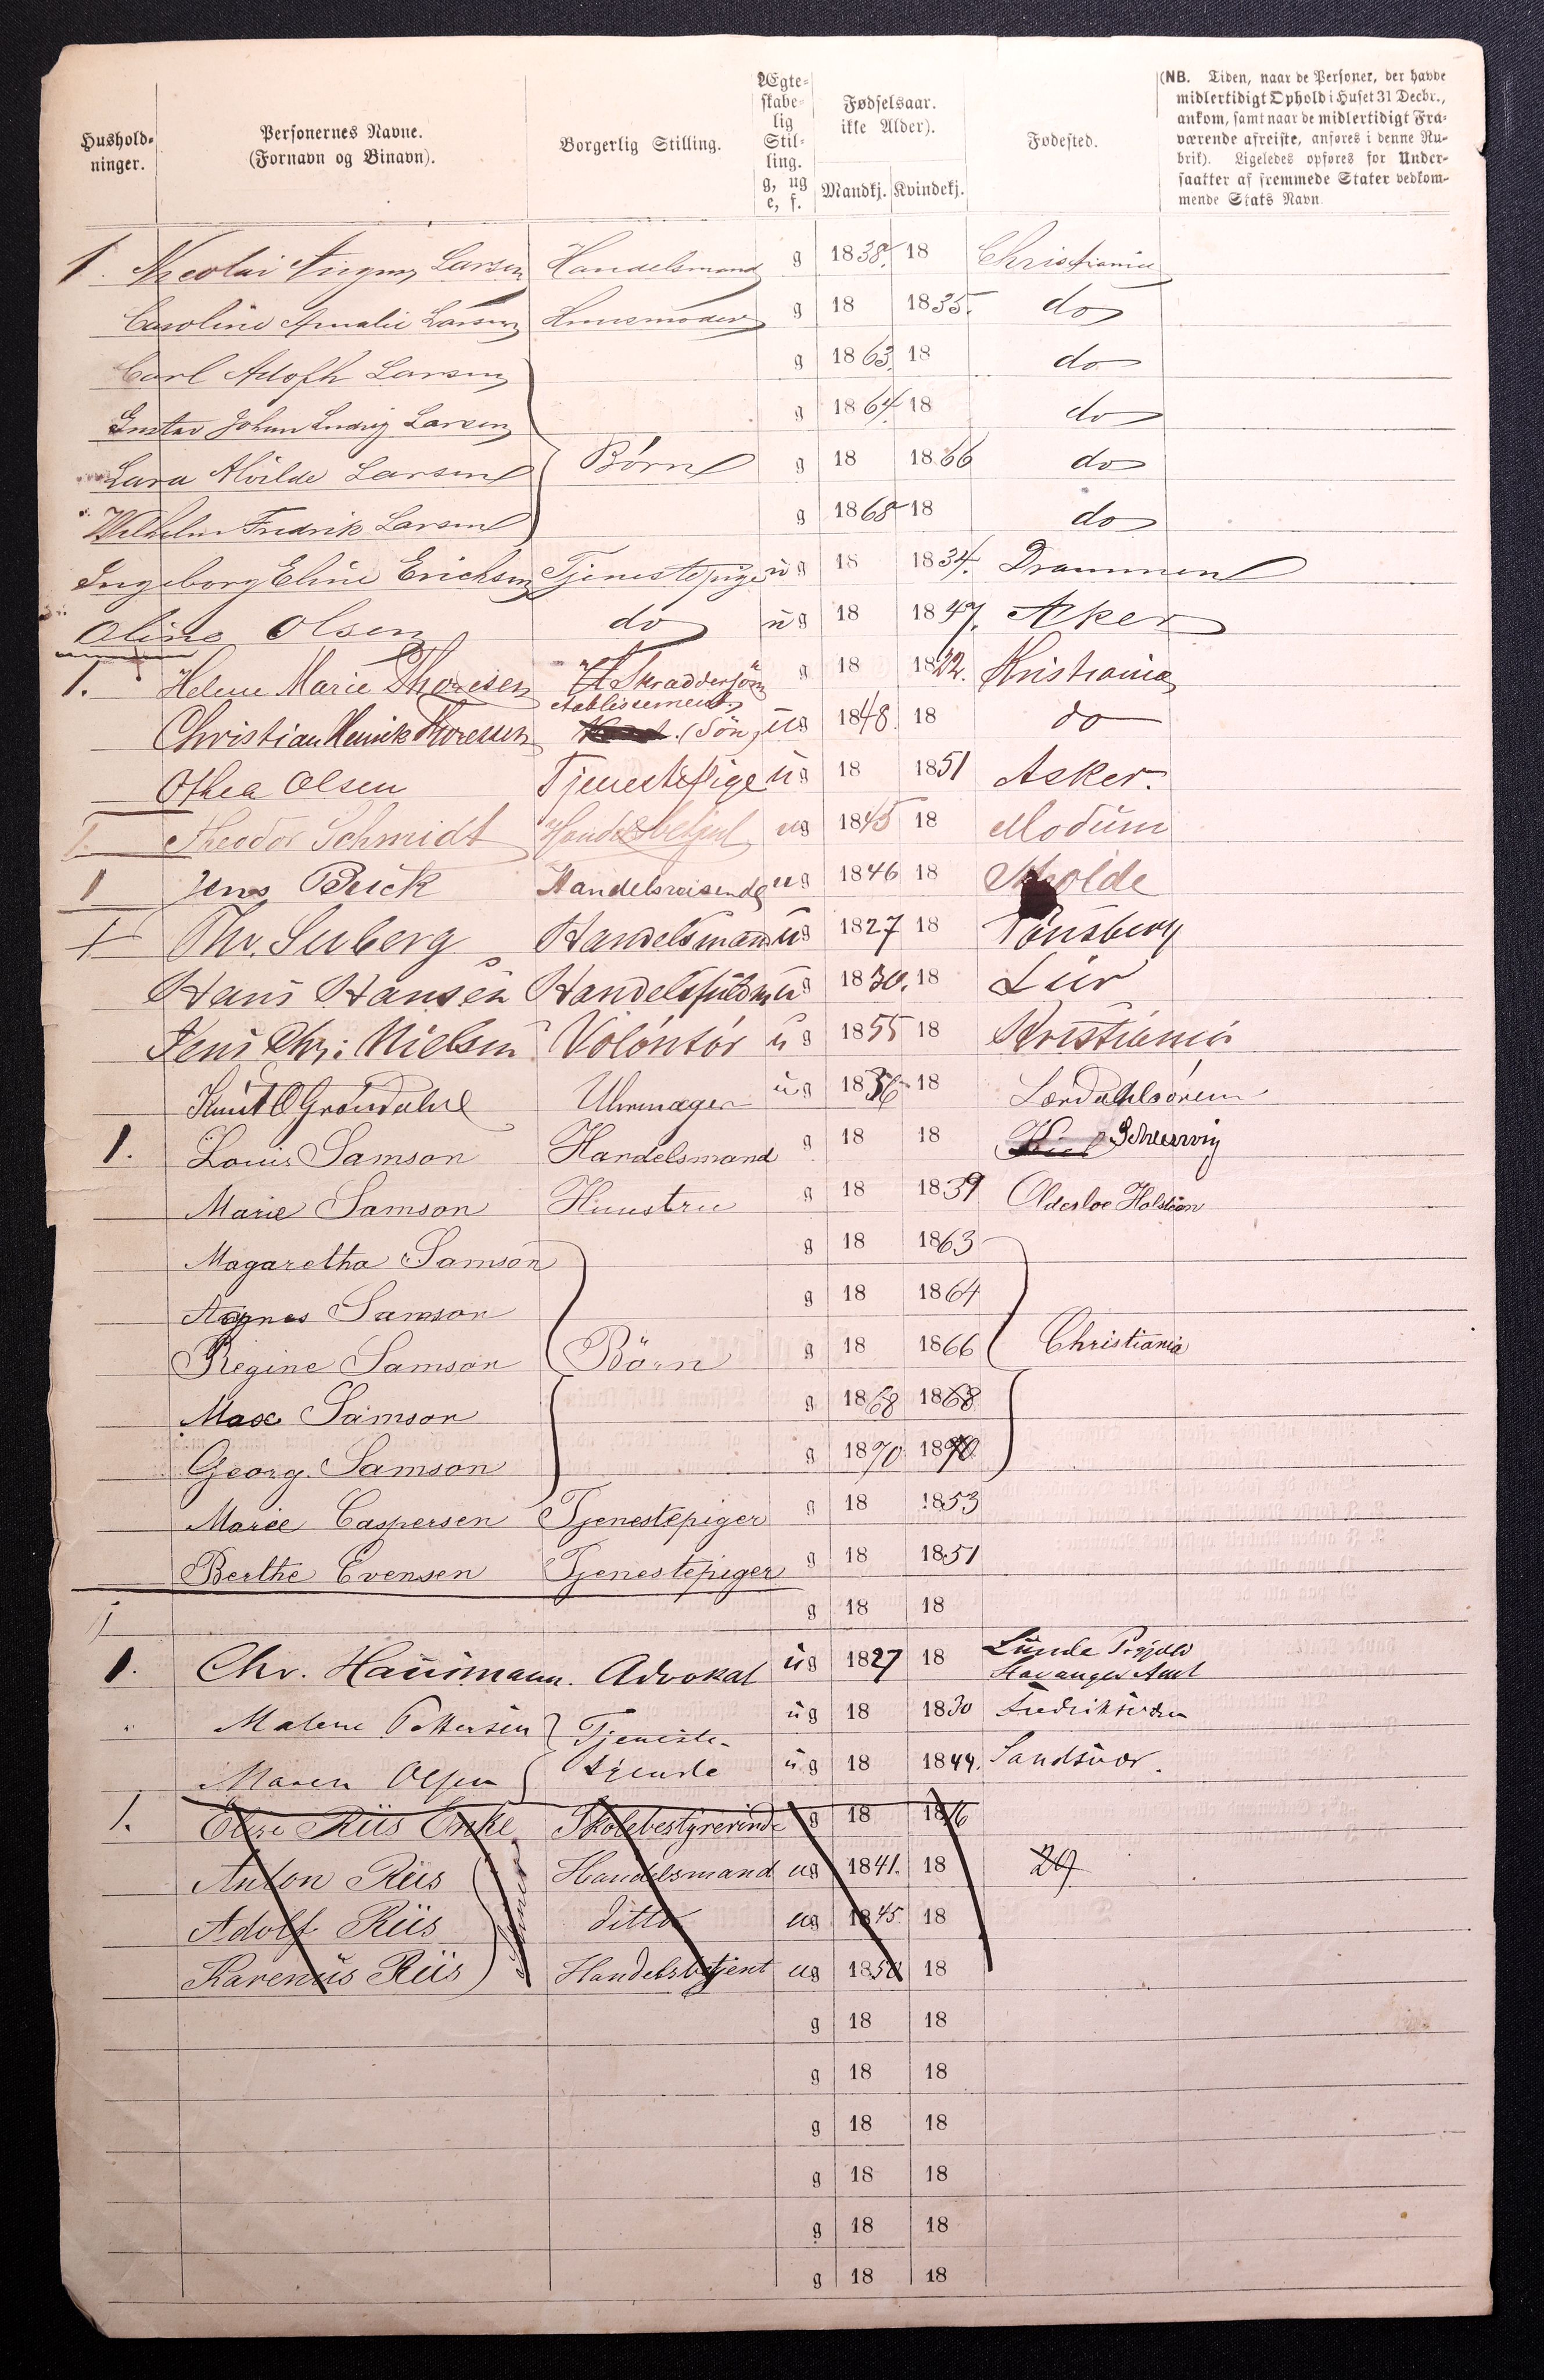 Hushold-
ninger.
Personernes Navne.
(Fornavn og Binavn).
Borgerlig Stilling.
Ægte-
skabe-
lig
Stil-
ling.
g, ug
e, f.
Fødselsaar.
ikke Alder).
Mandkj. Kvindekj.
Fødested.
(NB. Tiden, naar de Personer, der havde
midlertidigt Ophold i Huset 31 Decbr.,
ankom, samt naar de midlertidigt Fra-
værende afreiste, anføres i denne Ru-
brik). Ligeledes opføres for Under-
saatter af fremmede Stater vedkom-
mende Stats Navn
1. Nicolai Larsen Handelsmand g 1838. 18 Christiania
Caroline Amalie Larsen Huusmoder g 18 1835. do
Carl Adolph Larsen g 1863. 18 do
Gustav Johan Ludvig Larsen g 1864. 18 do
Lara Alvilde Larsen Børn g 18 1866 do
Wilhelm Fredrik Larsen g 1868 18 do
Ingeborg Eline Erichsen Tjenestepige ug 18 1834. Drammen
Oline Olsen do ug 18 1847. Aker
1. Helene Marie Thoresen Skraddersöm g 18 1822. Kristiania
etablissement
Christian Henrik Thoresen (Sön) ug 1848. 18 do
Othea Olsen Tjenestepige ug 18 1851 Asker.
1. Theodor Schmidt Handelsbetjent ug 1845 18 Modum
1 Jens Beick Handelsreisende ug 1846 18 Molde
1 Thv. Suberg Handelsmann ug 1827 18 Tönsberg
Hans Hansen Handelsfuldm. ug 1830. 18 Lier
Jens Chr: Nielsen Volontör ug 1855 18 Kristiania
Knut O Gröndahl Uhrmager ug 1836 18 Lærdahlsören
1. Louis Samson Handelsmand g 18 18 Schleswig
Marie Samson Huustru g 18 1839 Oldesloe Holstein
Magaretha Samson g 18 1863
Agnes Samson g 18 1864
Regine Samson Börn g 18 1866 Christiania
Max Samson g 1868 1868
Georg Samson g 1870 1870
Maree Caspersen Tjenestepiger g 18 1853
Berthe Evensen Tjenestepiger g 18 1851
g 18 18
1. Chr. Hausmann. Advokat ug 1827 18 Lunde Prgjeld
Stavanger Amt
Malene Pettersen Tjeneste- ug 18 1830
Maren Olsen tyende ug 18 1844. Sandsvær.
1. Elise Riis Enke Skolebestyrerinde g 18 1816
Anton Riis Handelsmand ug 1841. 18 29
Adolf Riis ditto ug 1845. 18
Karenius Riis Handelsbetjent ug 1850 18
g 18 18
g 18 18
g 18 18
g 18 18
g 18 18
g 18 18